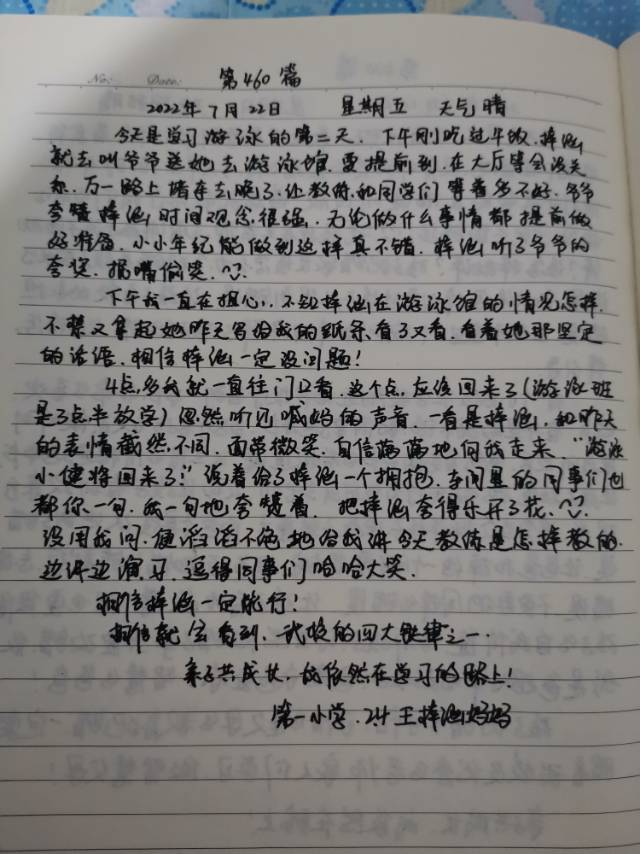 No: Date: 第460篇
2022年7月22日 星期五 天气晴
今天是学习游泳的第二天，下午刚吃过午饭，梓涵
就去叫爷爷送她去游泳馆，要提前到，在大厅等会没关
系，万一路上堵车去晚了，让教练和同学们等着多不好，爷爷
夸赞梓涵时间观念很强，无论做什么事情都提前做
好准备，小小年纪能做到这样真不错，梓涵听了爷爷的
夸奖，捂嘴偷笑，
下午我一直在担心，不知梓涵在游泳馆的情况怎样，
不禁又拿起她昨天写给我的纸条，看了又看，看着她那坚定
的话语，相信梓涵一定没问题！
4点多我就一直往门口看，这个点，应该回来了（游泳班
是3点半放学）忽然听见喊妈的声音，一看是梓涵，和昨天
的表情截然不同，面带微笑，自信满满地向我走来，“游泳
小健将回来了！”说着给了梓涵一个拥抱，车间里的同事们也
都你一句，我一句地夸赞着，把梓涵夸得乐开了花，
没用我问，便滔滔不绝地给我讲今天教练是怎样教的，
边讲边演习，逗得同事们哈哈大笑，
相信梓涵一定能行！
相信就会看到，武校的四大铁律之一，
亲子共成长，我依然在学习的路上！
第一小学，2.4王梓涵妈妈